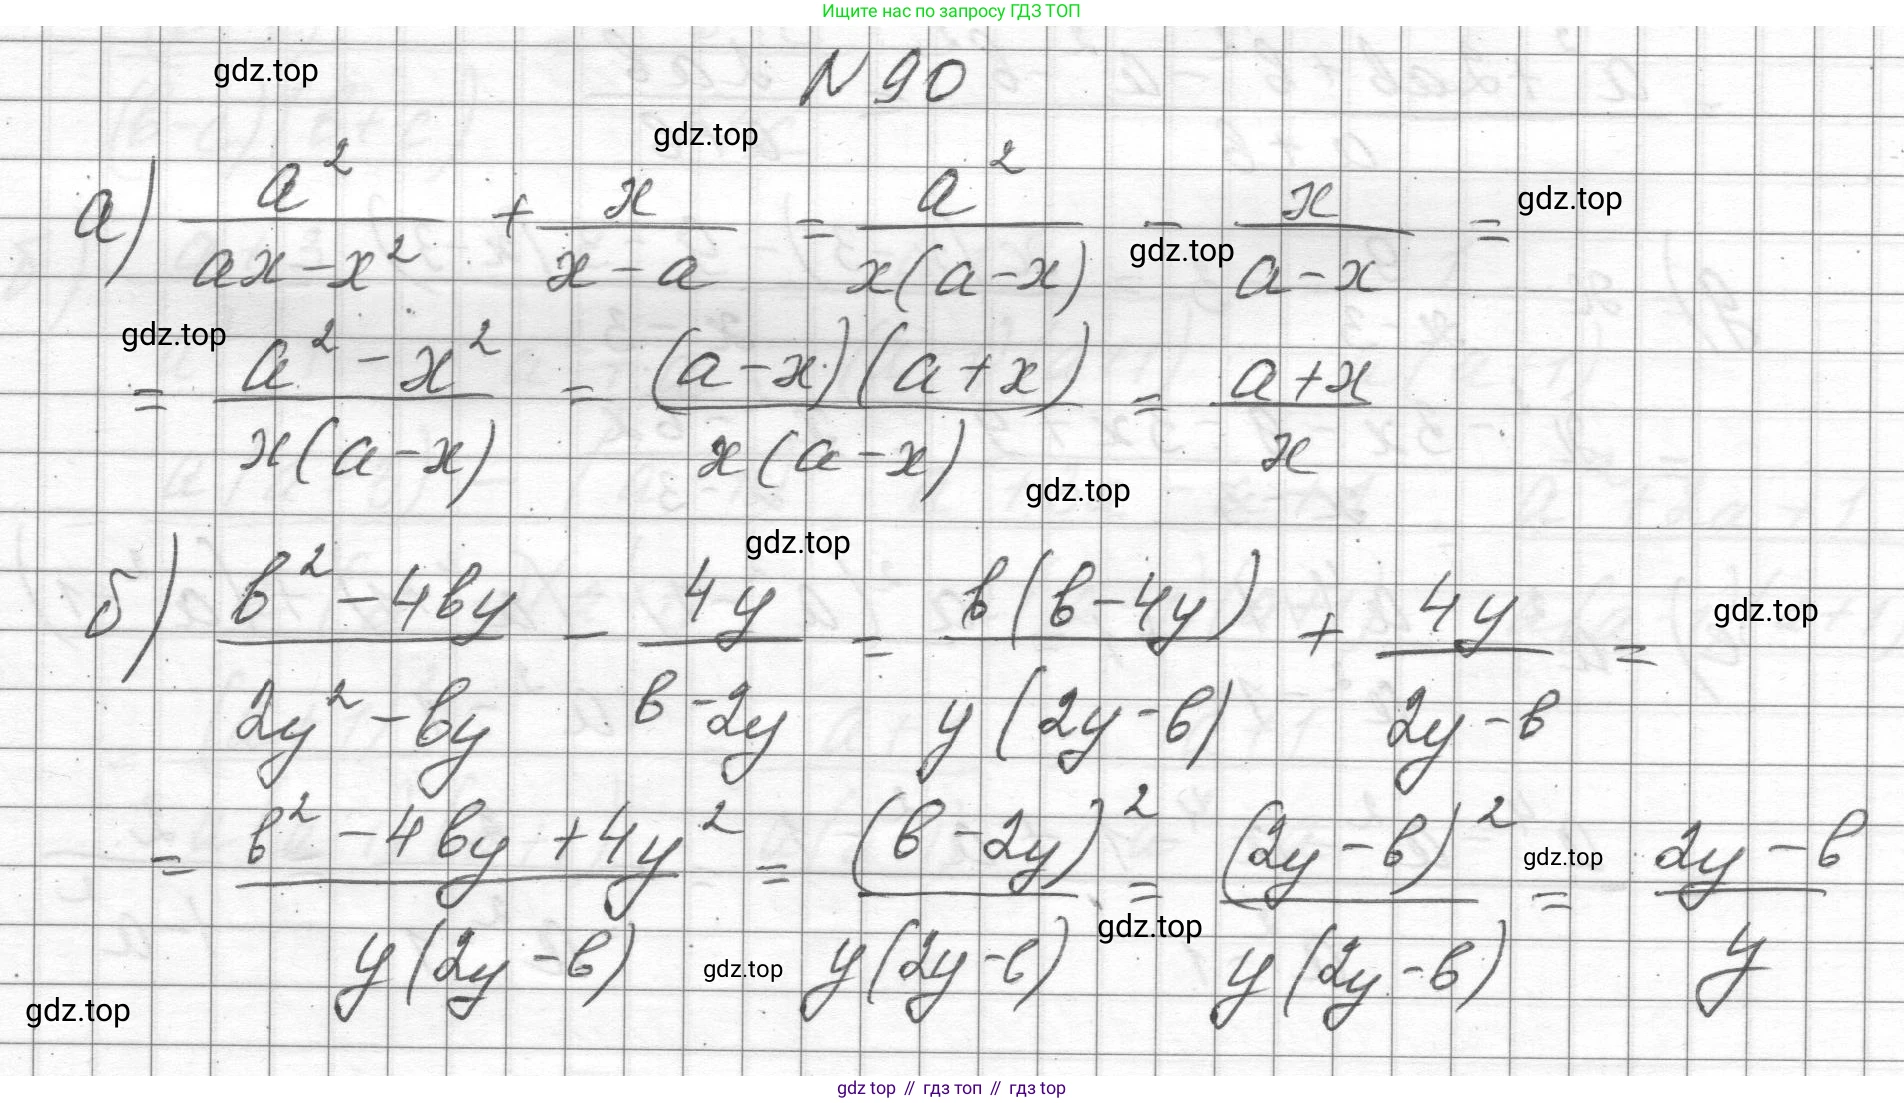 Ищите нас по запросу ГДЗ ТОП
gdz.top
N 90
gdz.top
а) a²/(ax-x²) + x/(x-a) = a²/(x(a-x)) - x/(a-x) =
gdz.top
gdz.top
gdz.top
= (a²-x²)/(x(a-x)) = ((a-x)(a+x))/(x(a-x)) = (a+x)/x
gdz.top
gdz.top
б) (b²-4by)/(2y²-by) - 4y/(b-2y) = (b(b-4y))/(y(2y-b)) + 4y/(2y-b) =
gdz.top
= (b²-4by+4y²)/(y(2y-b)) = (b-2y)²/(y(2y-b)) = (2y-b)²/(y(2y-b)) = (2y-b)/y
gdz.top
gdz.top
gdz.top
gdz.top
gdz top // гдз топ // гдз top